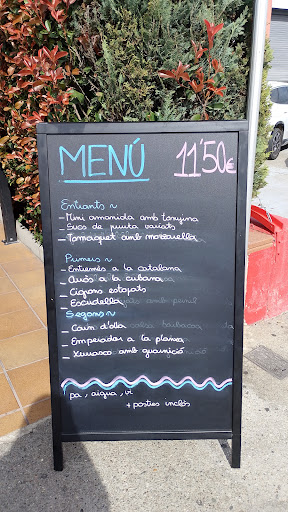 MENÚ 11'50€
Entrants ~
- Mini amanida amb tonyina
- Sucs de fruita variats
- Tomaquet amb mozzarella
Primers ~
- Entremés a la catalana
- Arròs a la cubana
- Cigrons estofats
- Escudella
Segons ~
- Carn d'olla
- Emperador a la planxa
- Xurrasco amb guarnició
pa, aigua, vi
+ postres inclòs